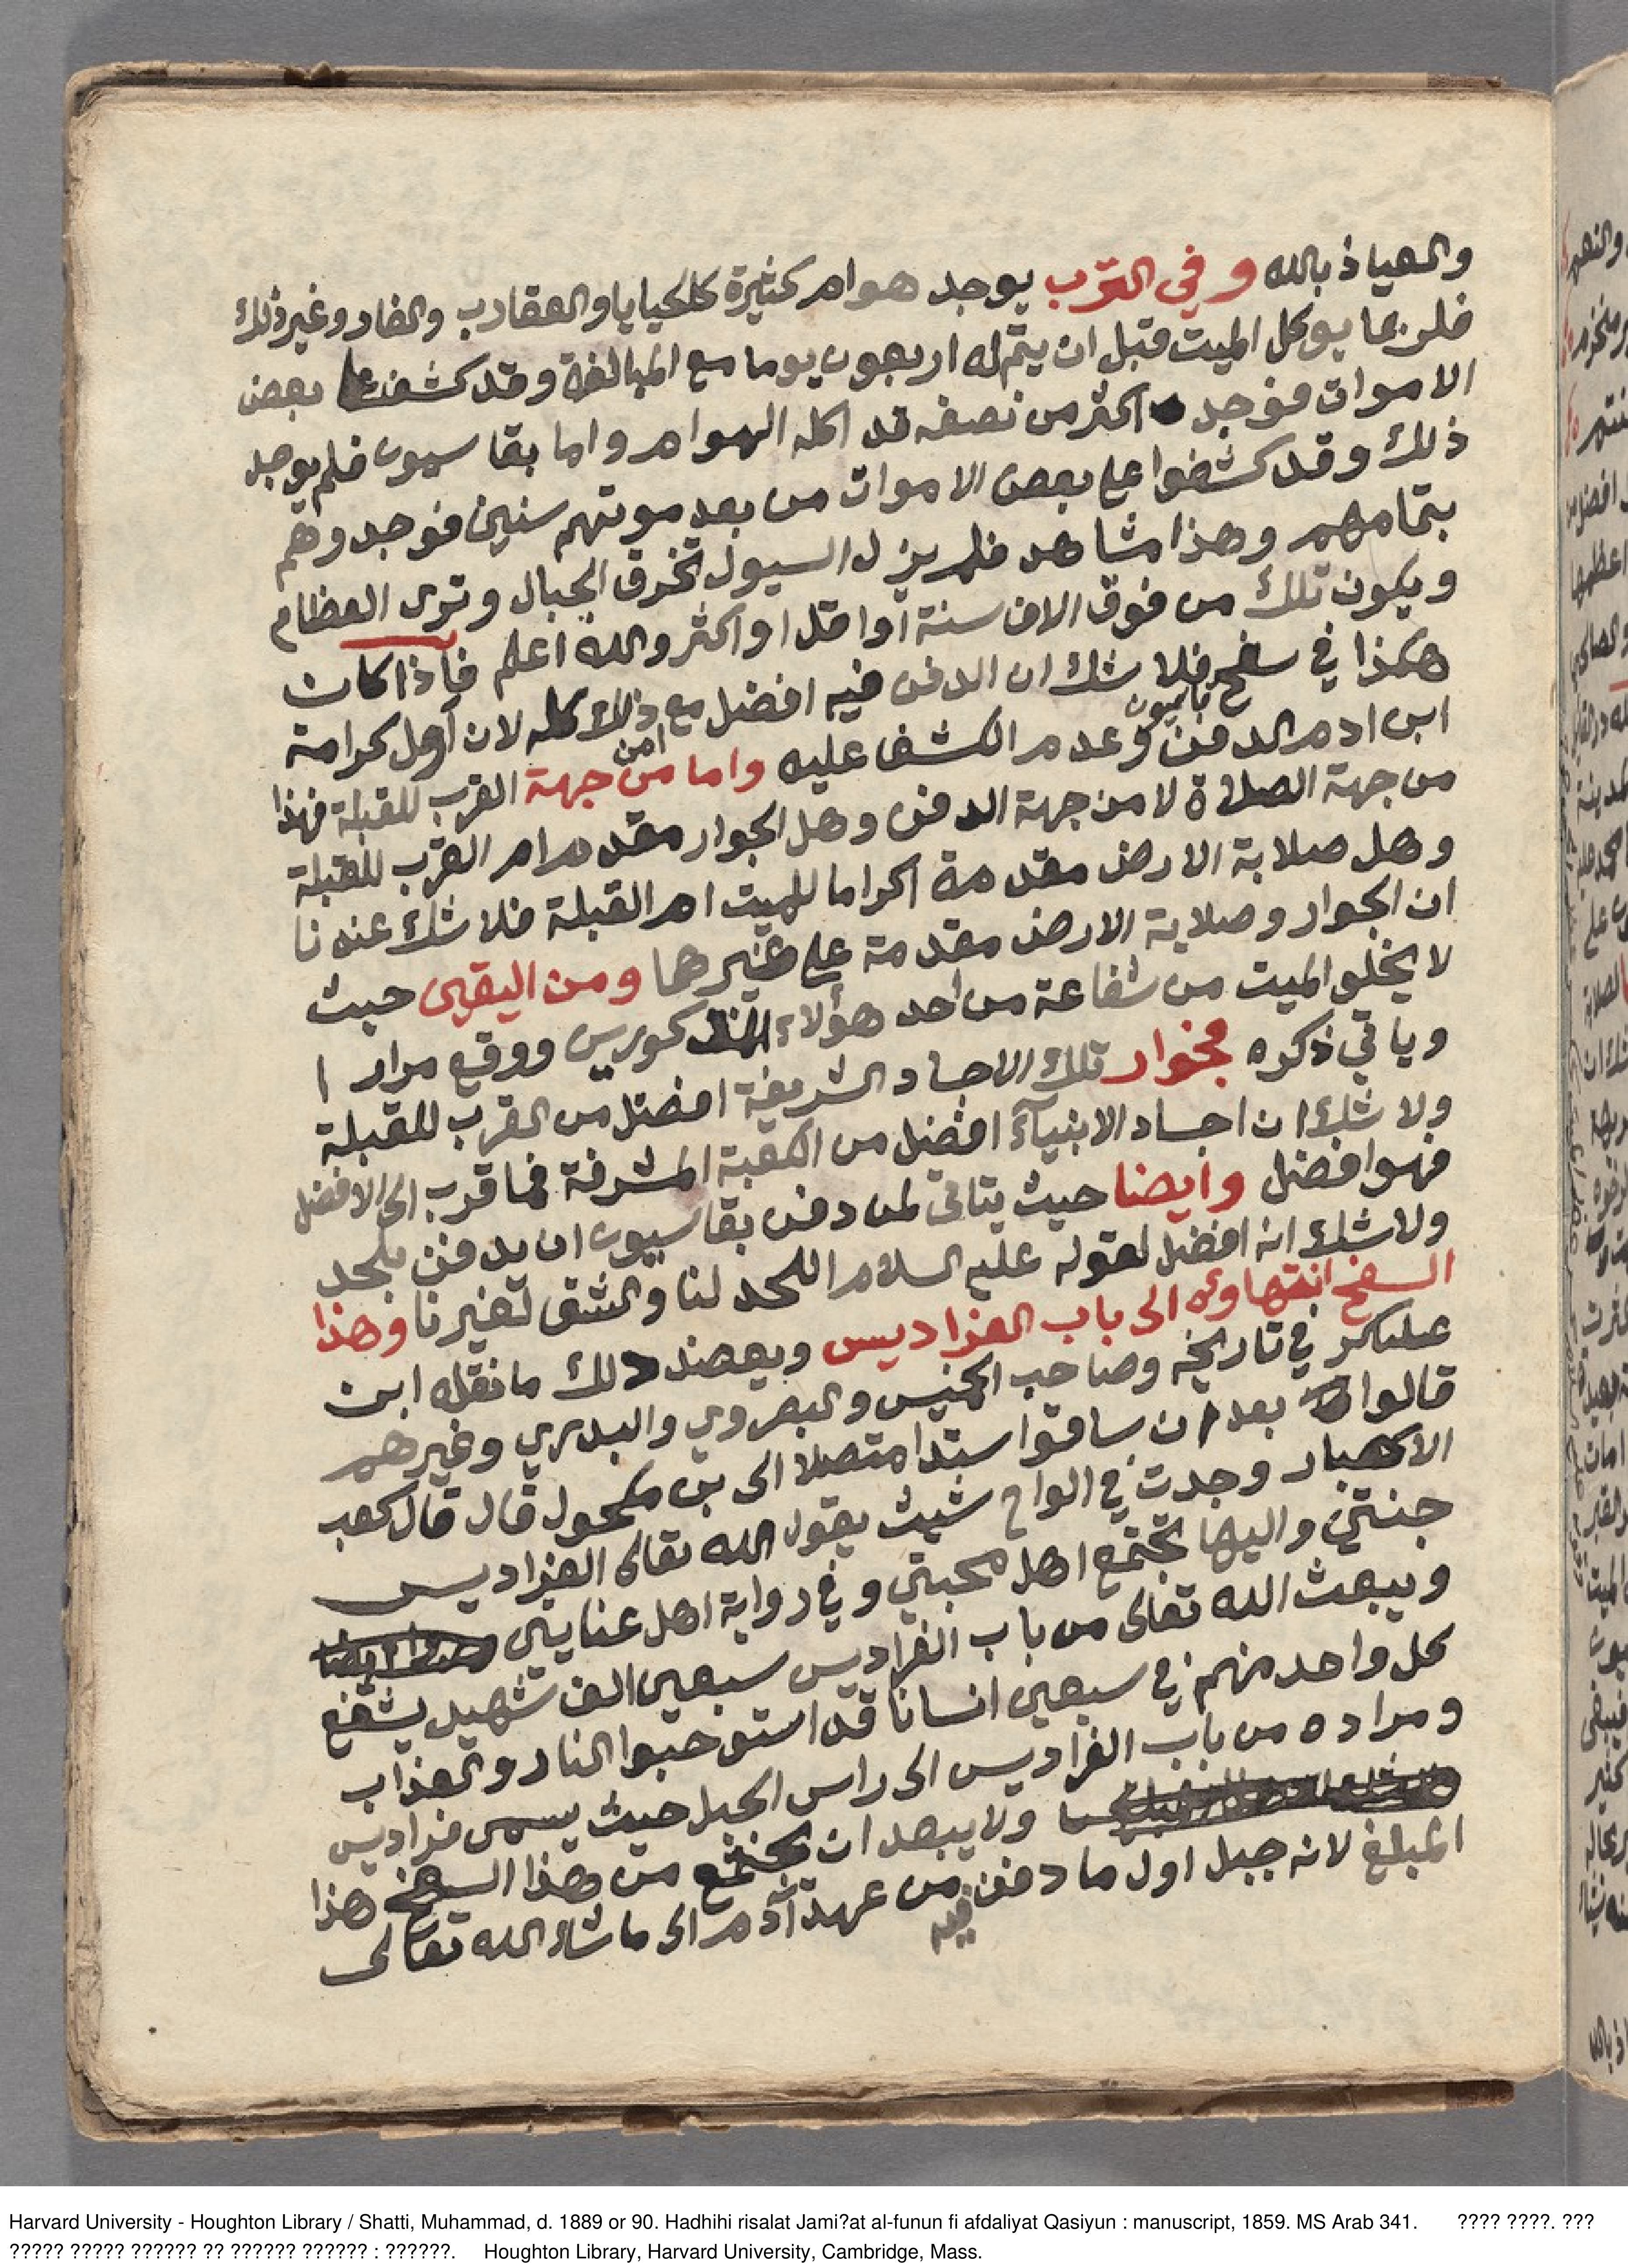 والعياذ بالله وفي الترب يوجد هوام كثيرة كالحيايا والعقارب والفار وغير ذلك
فلربما يوكل الميت قبل ان يتم له اربعون يوما مع المبالغة وقد كشف بعض
الاموات فوجد اكثر من نصفه قد اكله الهوام واما بقاسيون فلم يوجد
ذلك وقد كشفوا على بعض الاموات من بعد موتهم سنين فوجدوهم
بتمامهم وهذا مشاهد فلم يزل السيول تخرق الجبال وترى العظام
ويكون تلك من فوق الاف سنة او اقل او اكثر والله اعلم فاذا كان
هكذا في سفح قاسيون فلا شك ان الدفن فيه افضل مع ذلك كله لان اول كرامة
ابن ادم الدفن وعدم الكشف عليه واما من جهة القرب للقبلة فهذا
من جهة الصلاة لا من جهة الدفن وهل الجوار مقدم ام القرب للقبلة
وهل صلابة الارض مقدمة اكراما للميت ام القبلة فلا شك عندنا
ان الجوار وصلابة الارض مقدمة على غيرها ومن اليقين حيث
لا يخلو الميت من شفاعة من احد هؤلاء المذكورين ووقع مرارا
وياتي ذكره فجوار تلك الاجساد الشريفة افضل من القرب للقبلة
ولا شك ان اجساد الانبياء افضل من الكعبة المشرفة فما قرب الى الافضل
فهوا فضل وايضا حيث يتاتى لمن دفن بقاسيون ان يدفن بلحد
ولا شك انه افضل لقوله عليه السلام اللحد لنا والشق لغيرنا وهذا
السفح انتهاوه الى باب الفراديس ويعضد ذلك ما نقله ابن
عساكر في تاريخه وصاحب الخميس والبصروي والبدري وغيرهم
قالوا بعد ان ساقوا سندا متصلا الى بن مكحول قال قال كعب
الاحبار وجدت في الواح شيث يقول الله تعالى الفراديس
جنتي واليها تجتمع اهل محبتي وفي رواية اهل عنايتي
ويبعث الله تعالى من باب الفراديس سبعين الف شهيد يشفع
كل واحد منهم في سبعين انسانا قد استوجبوا النار والعذاب
ومراده من باب الفراديس الى راس الجبل حيث يسمى فراديس
ولا يبعد ان يجتمع من هذا السفح هذا
المبلغ لانه جبل اول ما دفن فيه من عهد آدم الى ما شاء الله تعالى
Harvard University - Houghton Library / Shatti, Muhammad, d. 1889 or 90. Hadhihi risalat Jami?at al-funun fi afdaliyat Qasiyun : manuscript, 1859. MS Arab 341. ???? ????. ???
????? ????? ?????? ?? ?????? ?????? : ??????. Houghton Library, Harvard University, Cambridge, Mass.